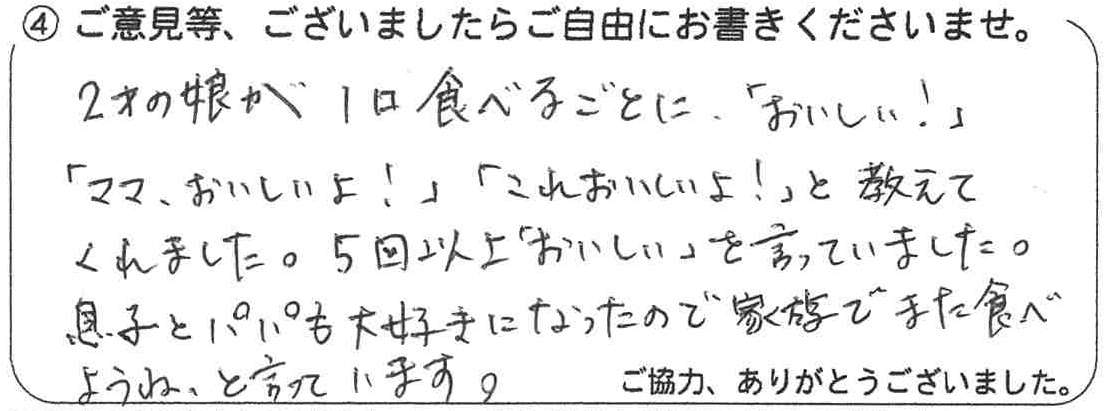 ④ ご意見等、ございましたらご自由にお書きくださいませ。
2才の娘が1口食べるごとに、「おいしい!」
「ママ、おいしいよ!」「これおいしいよ!」と教えて
くれました。5回以上「おいしい」を言っていました。
息子とパパも大好きになったので家族でまた食べ
ようね、と言っています。
ご協力、ありがとうございました。